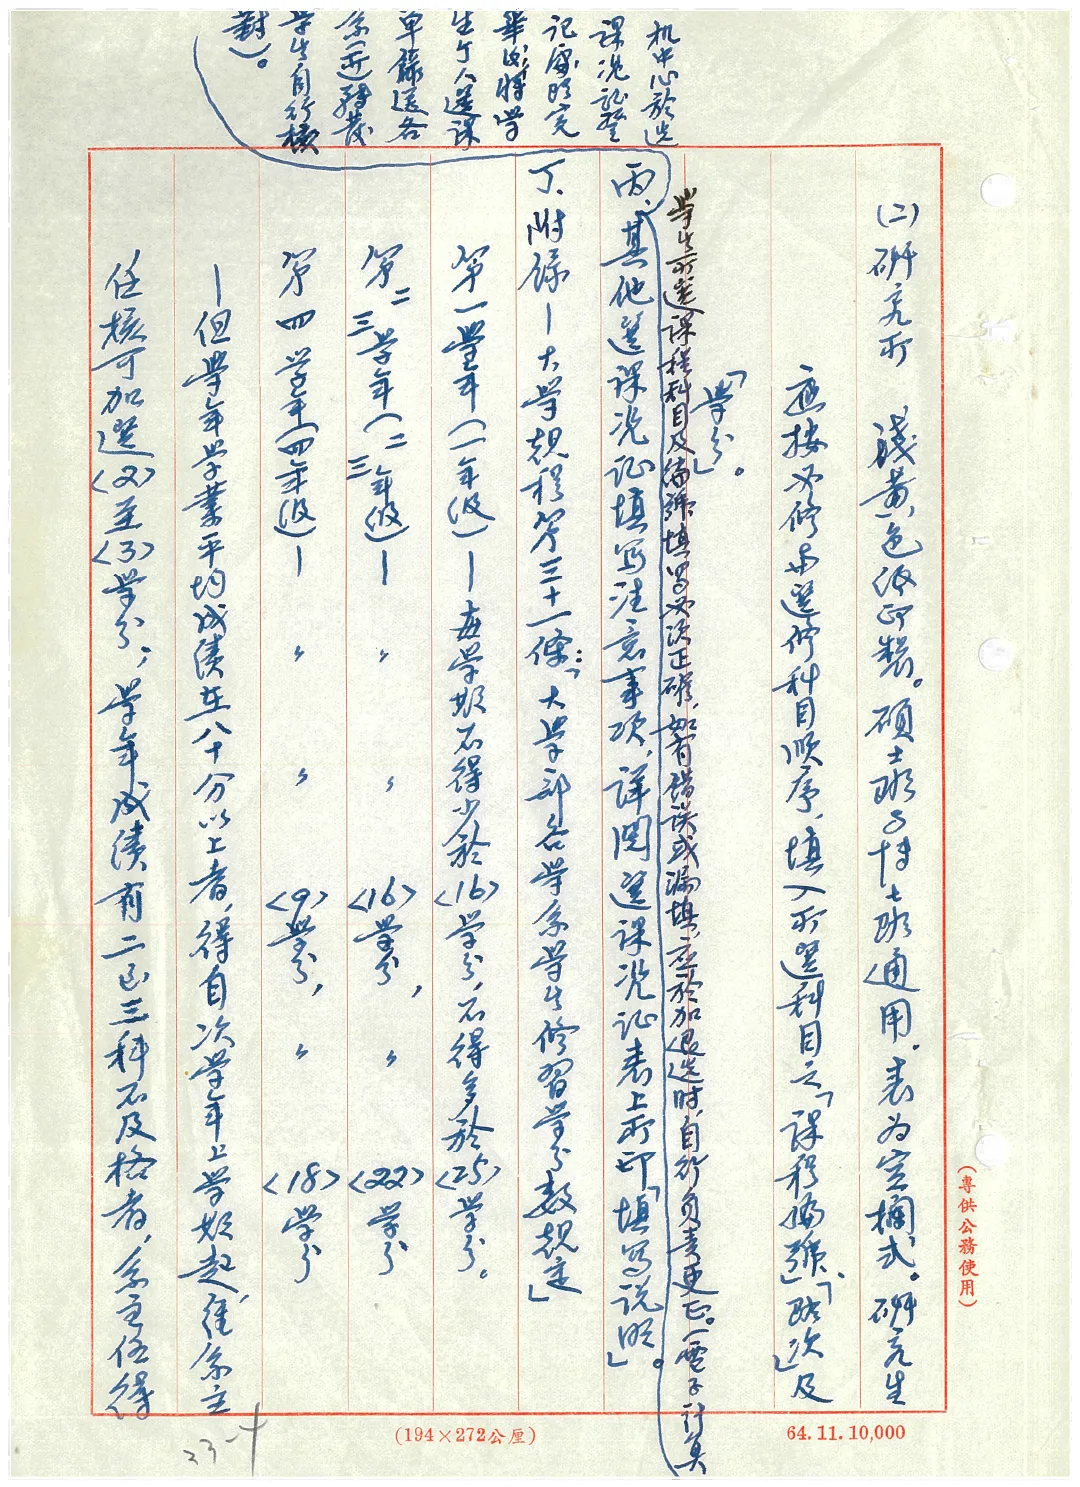 (二)研究所　淺黃色紙印製。碩士班与博士班通用。表為空欄式。研究生
應按必修与選修科目順序，填入所選科目之「課程編號」、「班次」及
「學分」。
學生所選課程科目及編號填寫必須正確，如有錯誤或漏填，應於加退選時，自行負責更正。(電子計算
机中心於选
課資訊登
記處理完
畢後，將學
生个人選課
單錄送各
系(所)轉發
學生自行核
對)。
丙、其他選課資訊填寫注意事項，詳閱選課資訊表上所印「填寫說明」。
丁、附錄—大學規程第三十一條：「大學部各學系學生修習學分數規定」
第一學年(一年級)—每學期不得少於<16>學分，不得多於<25>學分。
第二三学年(二三年級)—〃　〃　<16>學分，〃　<22>學分
第四学年(四年級)—〃　〃　<9>學分，〃　<18>學分
—但學年学業平均成績在八十分以上者，得自次學年上學期起，經系主
任核可加選<2>至<3>學分；學年成績有二至三科不及格者，系主任得
(專供公務使用)
(194×272公厘)
64.11.10,000
23-4